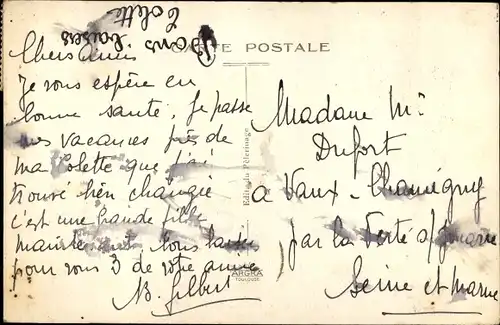 Bons baisers
Colette
CARTE POSTALE
Chers Amis
Je vous espère en
bonne santé, je passe
mes vacances près de
ma Colette que j'ai
trouvé bien changée
c'est une grande fille
maintenant
pour vous 3 de votre amie
B. Gilbert
Madame Mr
Dufort
a Vaux-Champigny
par la Ferté s/ Jouarre
Seine et Marne
Edit. du Pèlerinage
ARGRA
TOULOUSE